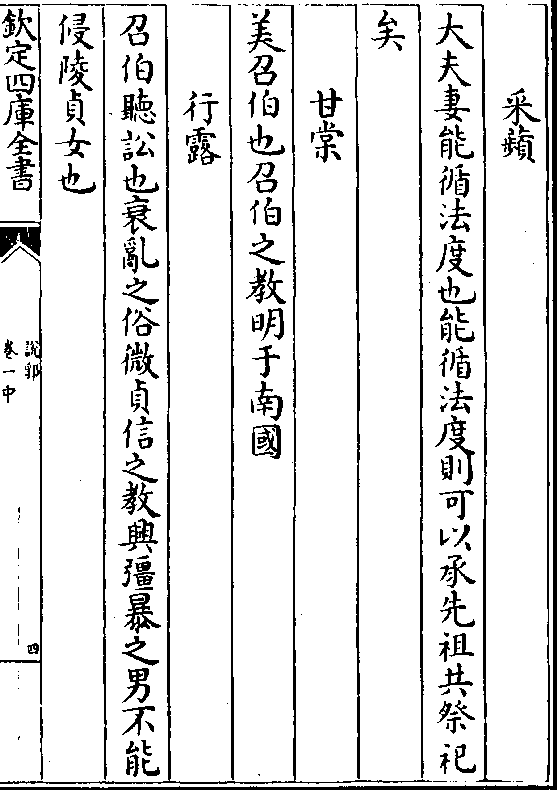 采蘋
大夫妻能循法度也能循法度則可以承先祖共祭祀
矣
甘棠
美召伯也召伯之教明于南國
行露
召伯聽訟也衰亂之俗微貞信之教興彊暴之男不能
侵陵貞女也
欽定四庫全書
說郛
卷一中
四